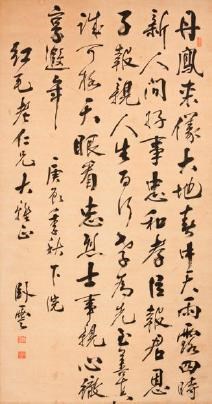 丹鳳來儀大地春中天雨露四時
新人間好事忠和孝臣報君恩
子報親人生百行孝為先至善
誠可格天眼看忠烈士事親心
享遐年 庚辰季秋下浣
老仁兄大雅正
臥雲